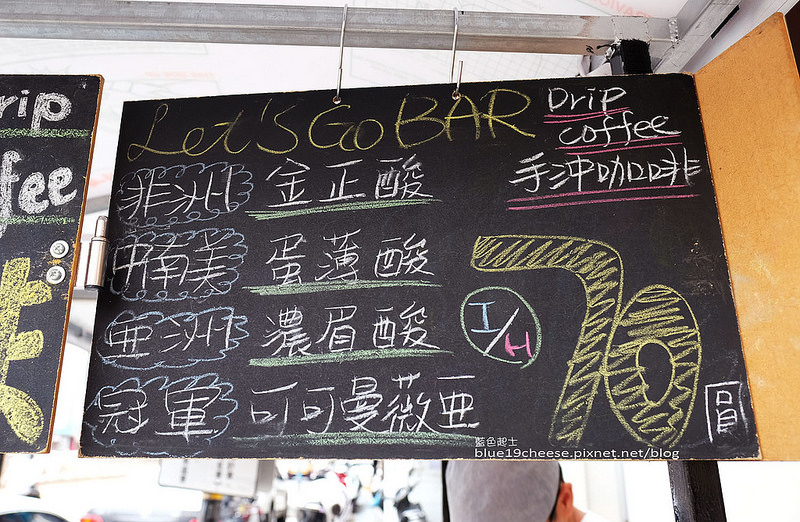 rip
fee
Let's Go BAR
Drip
coffee
手沖咖啡
非洲 金正酸
中南美 蛋薄酸
亜洲 濃眉酸
冠軍 可可曼薇亜
I/H
70
圓
藍色起士
blue19cheese.pixnet.net/blog